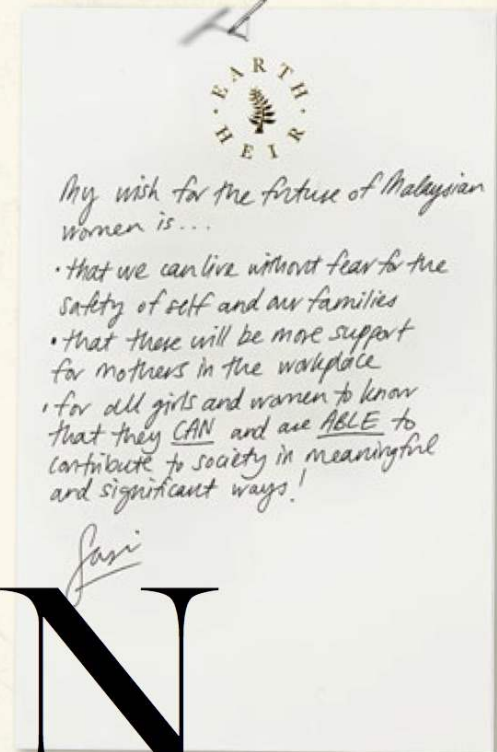 EARTH HEIR
My wish for the future of Malaysian
women is...
• that we can live without fear for the
safety of self and our families
• that there will be more support
for mothers in the workplace
• for all girls and women to know
that they CAN and are ABLE to
contribute to society in meaningful
and significant ways!
N